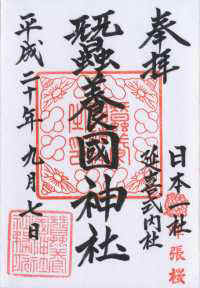 奉拝
日本一社
延喜式内社
張桜
蠶養國神社
平成二十年九月七日